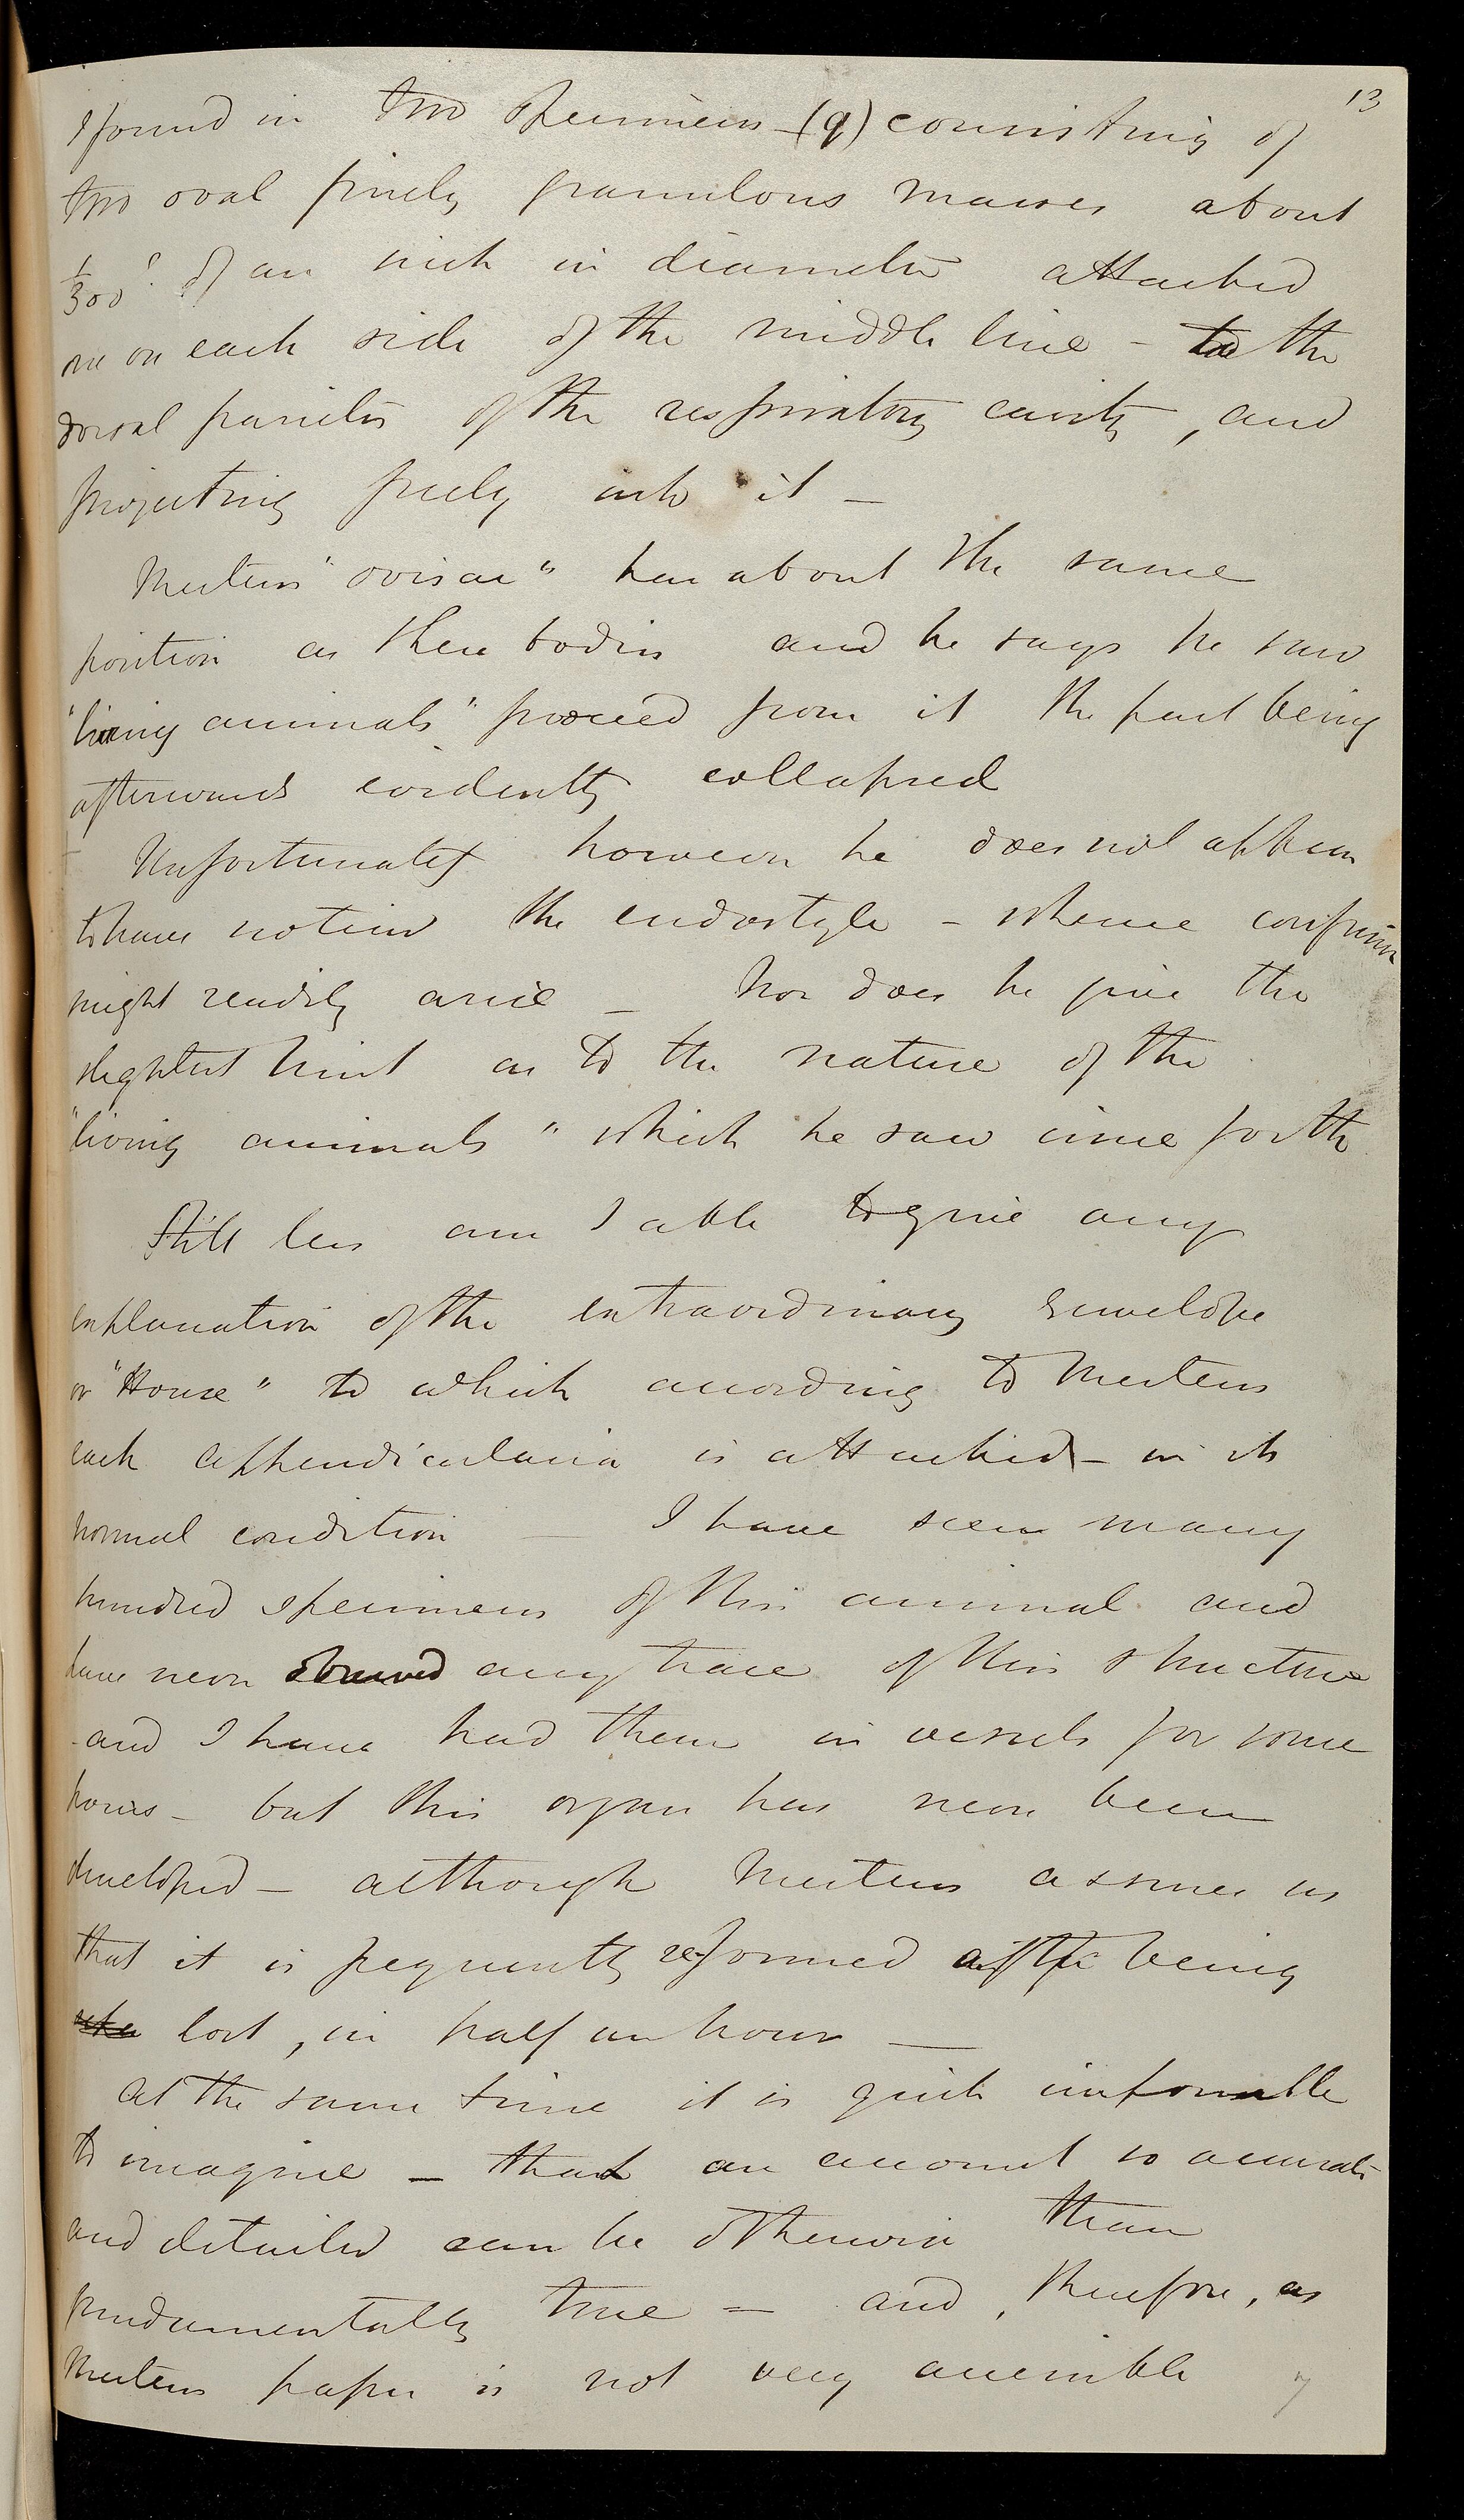 13
I found in two specimens - (q) consisting of
two oval finely granulous masses about
1/300 of an inch in diameter attached
one on each side of the middle line - to the
dorsal parietes of the respiratory cavity, and
projecting freely into it -
Mertens "ovisac" has about the same
position as these bodies and he says he saw
"living animals" proceed from it the part being
afterwards evidently collapsed
Unfortunately however he does not appear
to have noticed the endostyle - whence confusion
might readily arise - Nor does he give the
slightest hint as to the nature of the
"living animals" which he saw issue forth
Still less am I able to give any
explanation of the extraordinary envelope
or "House" to which according to Mertens
each appendicularia is attached - in its
normal condition - I have seen many
hundred specimens of this animal and
have never observed any trace of this structure
- and I have had them in vessels for some
hours - but this organ has never been
developed - although Mertens assures us
that it is frequently re-formed after being
lost, in half an hour -
At the same time it is quite impossible
to imagine - that an account so accurate
and detailed can be otherwise than
fundamentally true - and, therefore, as
Mertens paper is not very accessible